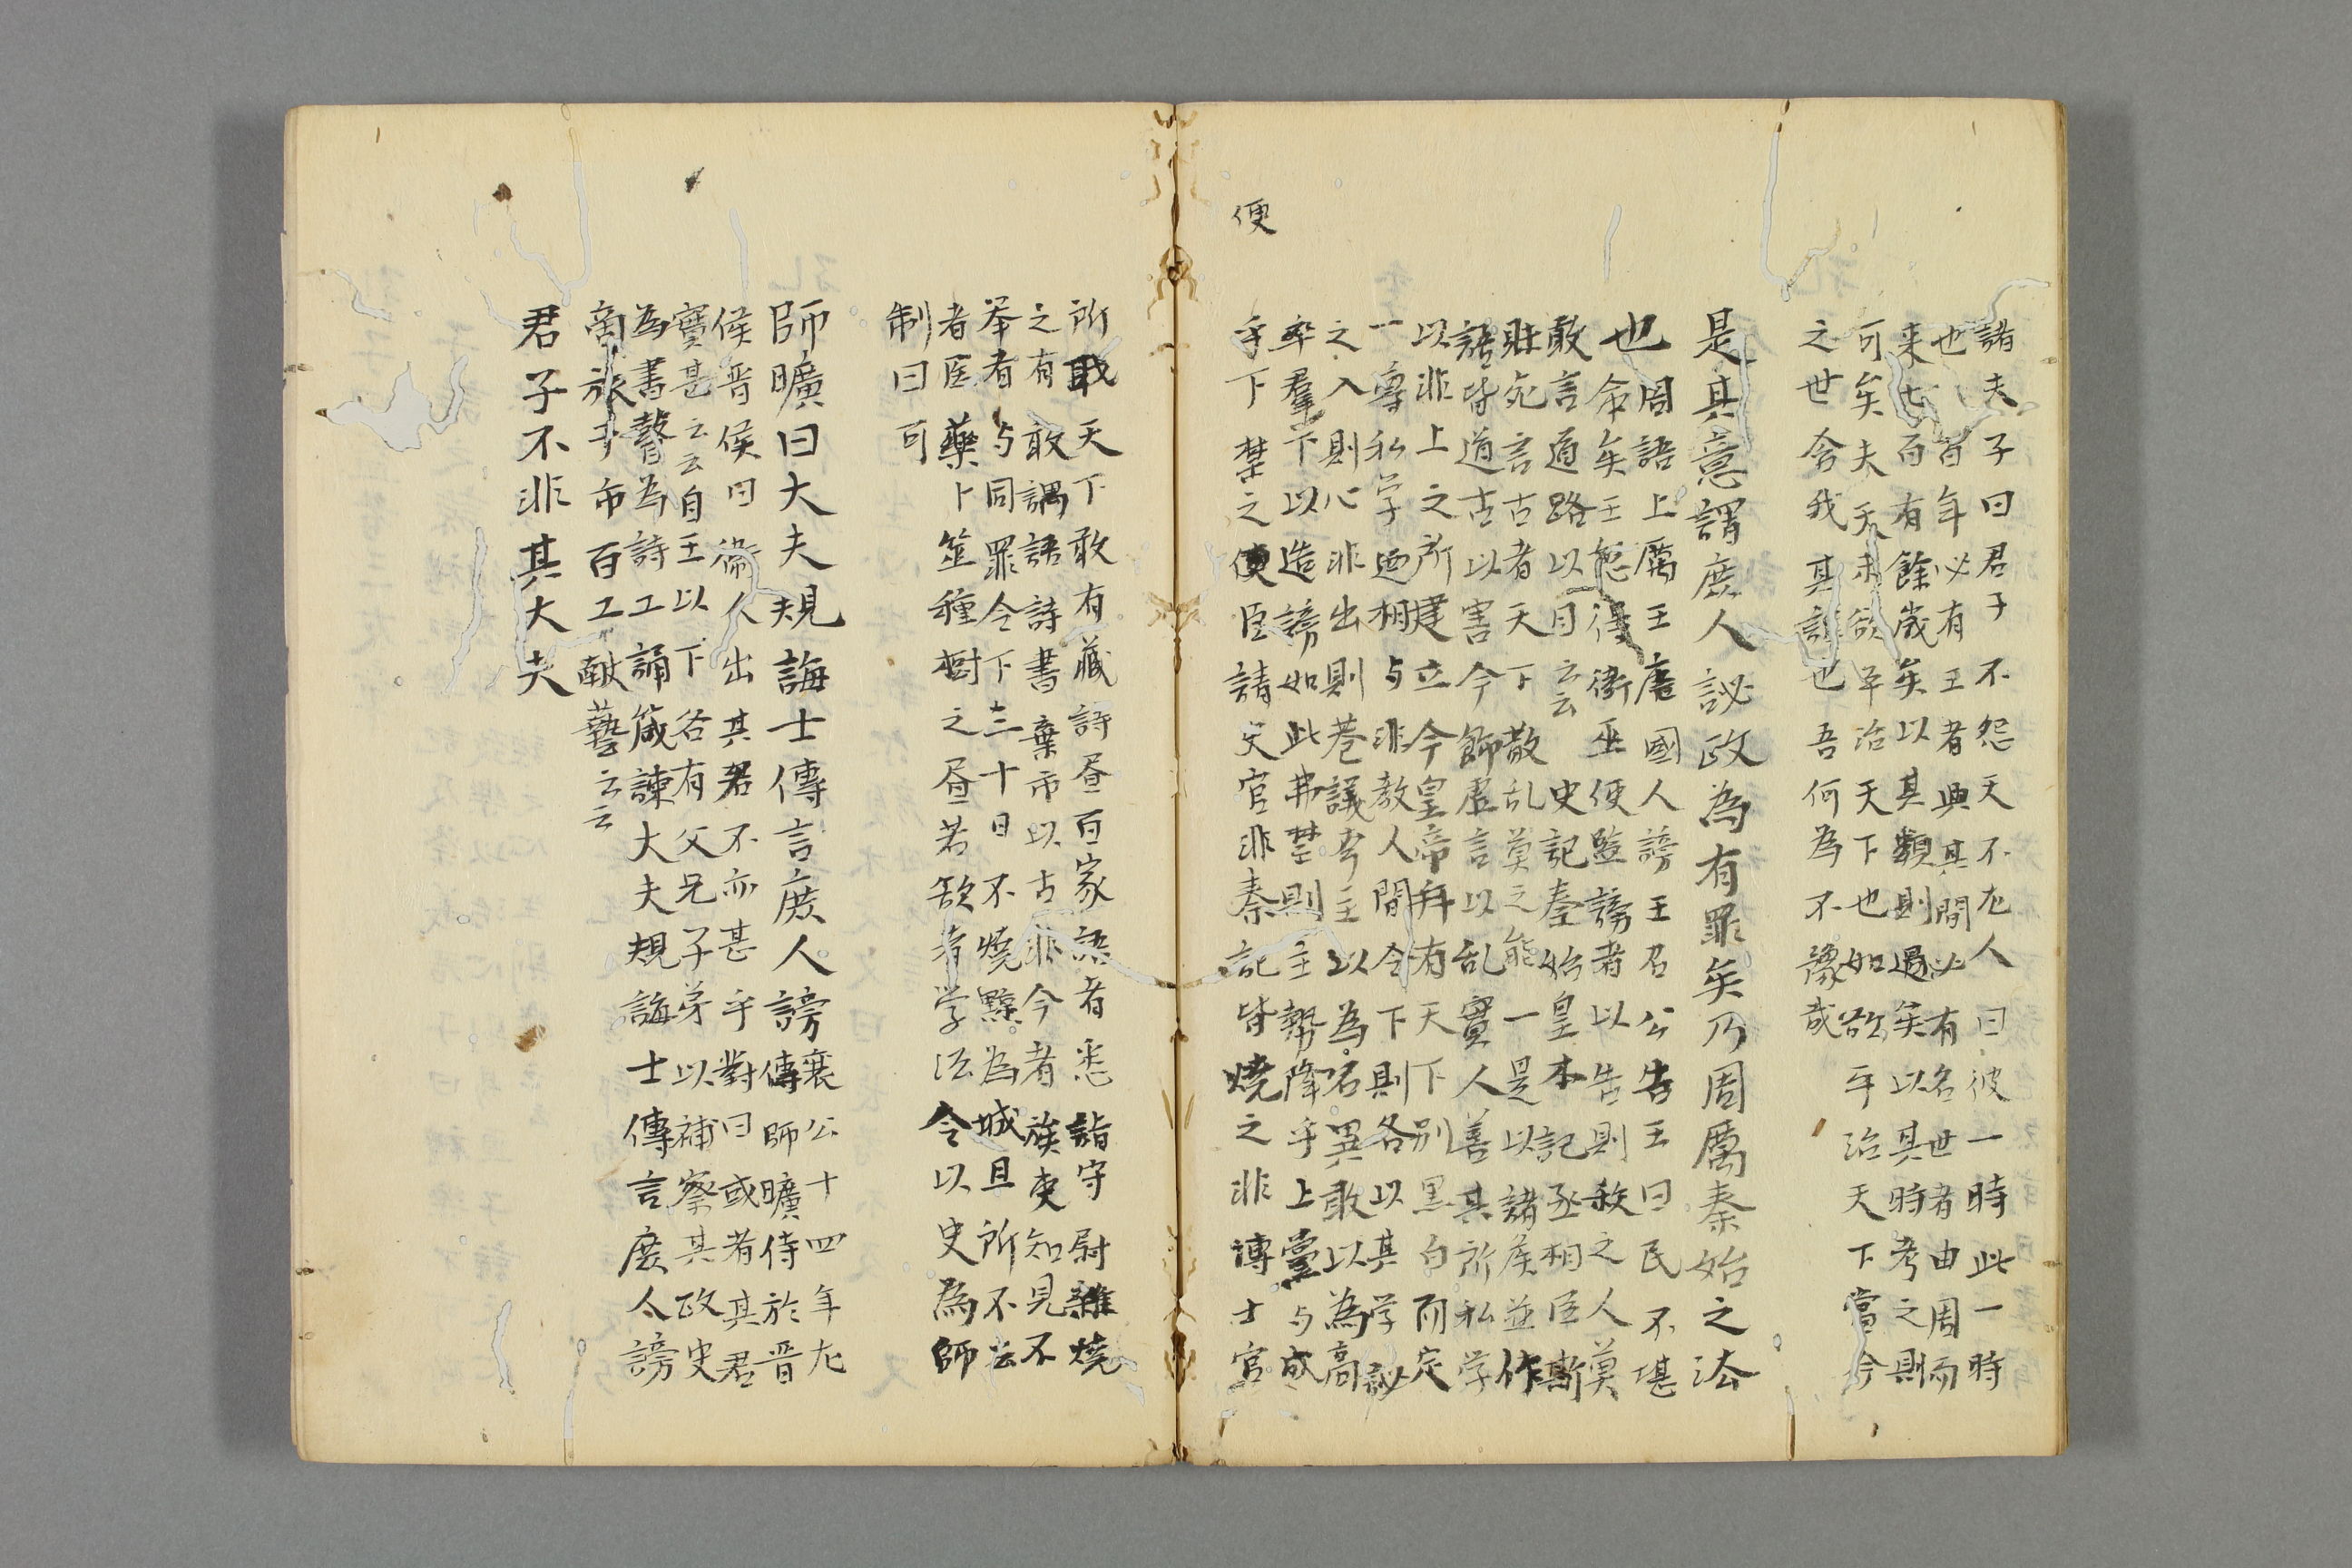 諸夫子曰君子不怨天不尤人曰彼一時此一時
也百年必有王者興其間必有名世者由周而
来七百有餘歳矣以其類則過矣以其時考之則
可矣夫天未欲平治天下也如欲平治天下當今
之世舎我其誰也吾何為不豫哉
是其意謂庶人訟政為有罪矣乃周厲秦始之法
也周語上厲王虐國人謗王召公告王曰民不堪
命矣王怒得衛巫使監謗者以告則殺之人莫
敢言道路以目云云史記秦始皇本記丞相臣斯
昧死言古者天下散乱莫之能一是以諸侯並作
語皆道古以害今飾虚言以乱實人善其所私学
以非上之所建立今皇帝并有天下別黒白而定
一尊私学而相与非教人間令下則各以其学訟
之入則心非出則巷議夸主以為名異敢以為高
率羣下以造謗如此弗禁則主勢降乎上黨与成
乎下禁之便臣請史官非秦記皆燒之非博士官
便
所職天下敢有藏詩書百家語者悉詣守尉雜燒
之有敢偶語詩書棄市以古非今者族吏知見不
挙者与同罪令下三十日不燒黥為城旦所不去
者医藥卜筮種樹之書若欲有学法令以史為師
制曰可
師曠曰大夫規誨士傳言庶人謗襄公十四年左
傳師曠侍於晋
侯晋侯曰衛人出其君不亦甚乎對曰或者其君
實甚云云自王以下各有父兄子弟以補察其政史
為書瞽為詩工誦箴諫大夫規誨士傳言庶人謗
商旅于市百工献藝云云
君子不非其大夫